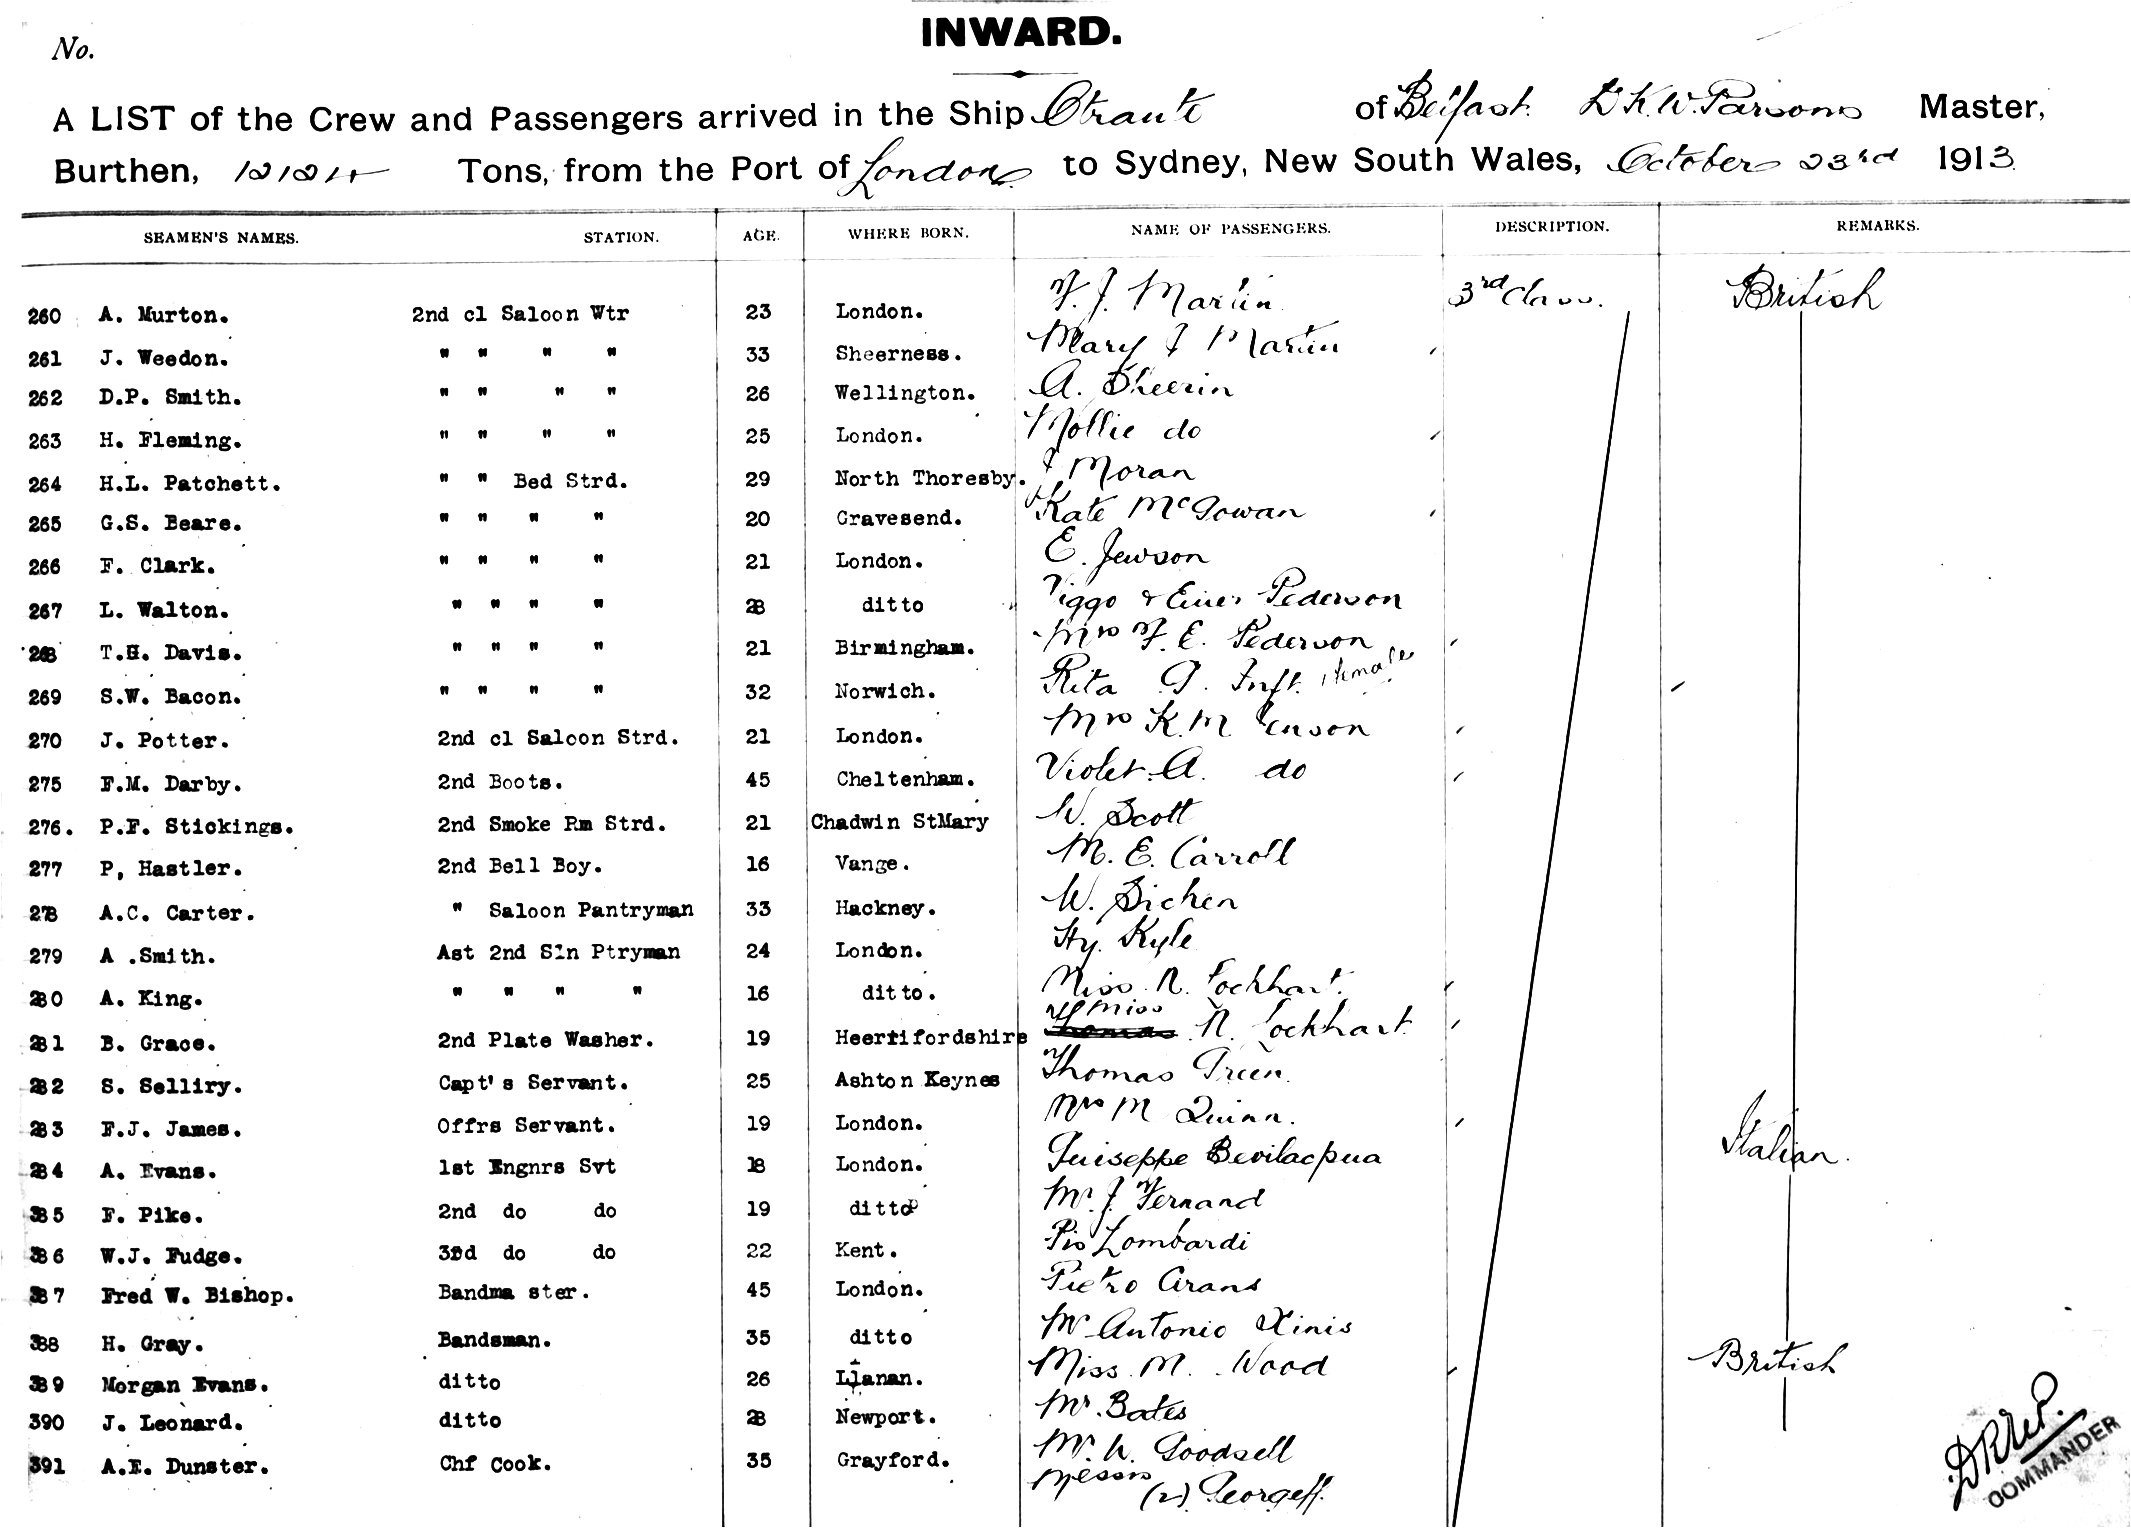 INWARD.
No.
A LIST of the Crew and Passengers arrived in the Ship Otranto of Belfast. Master,
Burthen, 12124 Tons, from the Port of London to Sydney, New South Wales, October 23rd 1913
SEAMEN'S NAMES. STATION. AGE. WHERE BORN. NAME OF PASSENGERS. DESCRIPTION. REMARKS.
260 A. Murton. 2nd cl Saloon Wtr 23 London. F. J. Martin 3rd Class. British
261 J. Weedon. " " " " 33 Sheerness. Mary J Martin
262 D.P. Smith. " " " " 26 Wellington. A. Sheerin
263 H. Fleming. " " " " 25 London. Mollie do
264 H.L. Patchett. " " Bed Strd. 29 North Thoresby. J Moran
265 G.S. Beare. " " " " 20 Gravesend. Kate McGowan
266 F. Clark. " " " " 21 London. E. Jewson
267 L. Walton. " " " " 28 ditto Viggo & Einer Pederson
268 T.H. Davis. " " " " 21 Birmingham. Mrs F. E. Pederson
269 S.W. Bacon. " " " " 32 Norwich. Rita Inft. female
270 J. Potter. 2nd cl Saloon Strd. 21 London. Mrs K. M.
275 F.M. Darby. 2nd Boots. 45 Cheltenham. Violet A. do
276. P.F. Stickings. 2nd Smoke Rm Strd. 21 Chadwin StMary W. Scott
277 P, Hastler. 2nd Bell Boy. 16 Vange. M. E. Carroll
278 A.C. Carter. " Saloon Pantryman 33 Hackney. W. Sichen
279 A .Smith. Ast 2nd Sln Ptryman 24 London. Hy. Kyle
280 A. King. " " " " 16 ditto. Miss N. Lockhart.
281 B. Grace. 2nd Plate Washer. 19 Heertifordshire Miss N. Lockhart
282 S. Selliry. Capt's Servant. 25 Ashton Keynes Thomas Green.
283 F.J. James. Offrs Servant. 19 London. Mrs M Quinn.
284 A. Evans. 1st Engnrs Svt 18 London. Guiseppe Bevilacpua Italian.
385 F. Pike. 2nd do do 19 ditto Mr J. Fernand
386 W.J. Fudge. 3rd do do 22 Kent. Pio Lombardi
387 Fred W. Bishop. Bandma ster. 45 London. Pietro Grans
388 H. Gray. Bandsman. 35 ditto Mr Antonio Xinis
389 Morgan Evans. ditto 26 Llanan. Miss M. Wood British
390 J. Leonard. ditto 28 Newport. Mr. Bates
391 A.E. Dunster. Chf Cook. 35 Grayford. Mr. W. Goodsell
Messrs (2) Georgeff.
COMMANDER